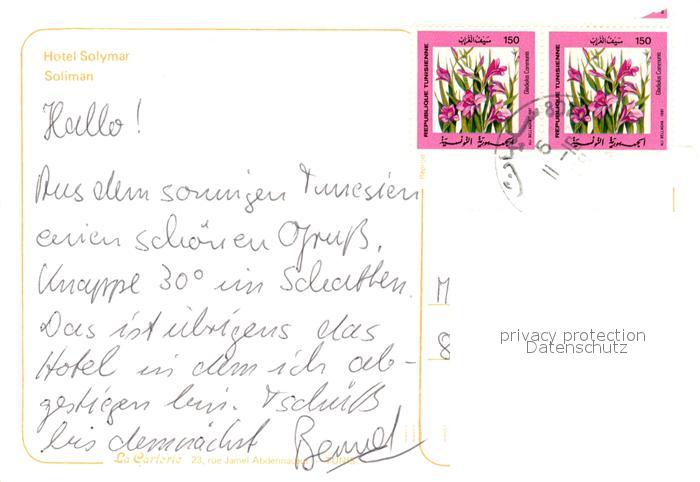 Hotel Solymar
Soliman
Hallo!
Aus dem sonnigen Tunesien
einen schönen Gruß.
Knappe 30° im Schatten.
Das ist übrigens das
Hotel in dem ich ab-
gestiegen bin. Tschüß
bis demnächst Bernd
La Carterie 23, rue Jamel Abdennasser TUNIS
REPUBLIQUE TUNISIENNE
150
Gladiolus Communis
الجمهورية التونسية
REPUBLIQUE TUNISIENNE
150
Gladiolus Communis
الجمهورية التونسية
M
8
privacy protection
Datenschutz